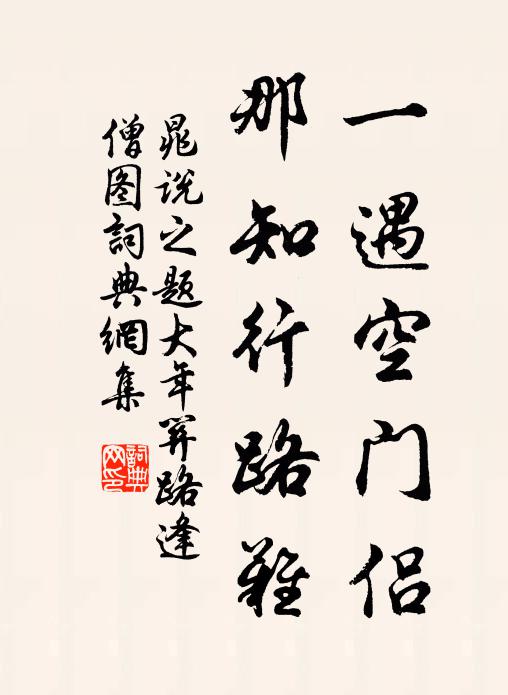 一遇空门侣
那知行路難
晁说之题大年笄路逢
僧图詞典網集
詞典网印